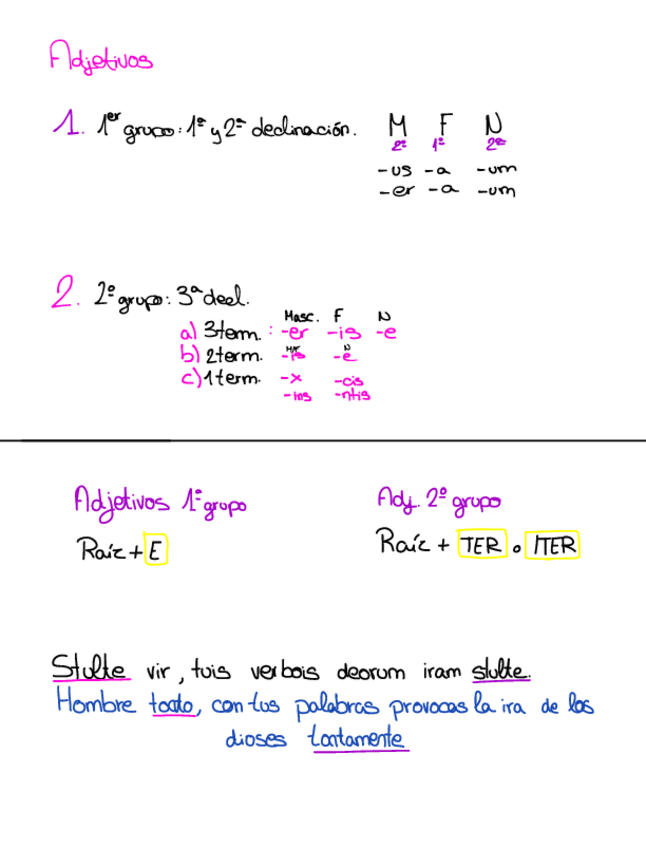 Adjetivos
1. 1er grupo: 1ª y 2ª declinación. M F N
2ª 1ª 2ª
-us -a -um
-er -a -um
2. 2º grupo: 3ª decl.
Masc. F N
a) 3 term. : -er -is -e
M/F N
b) 2 term. -is -e
c) 1 term. -x -cis
-ins -ntis
Adjetivos 1º grupo Adj. 2º grupo
Raíz + E Raíz + TER o ITER
Stulte vir, tuis verbois deorum iram stulte.
Hombre tonto, con tus palabras provocas la ira de los
dioses tontamente